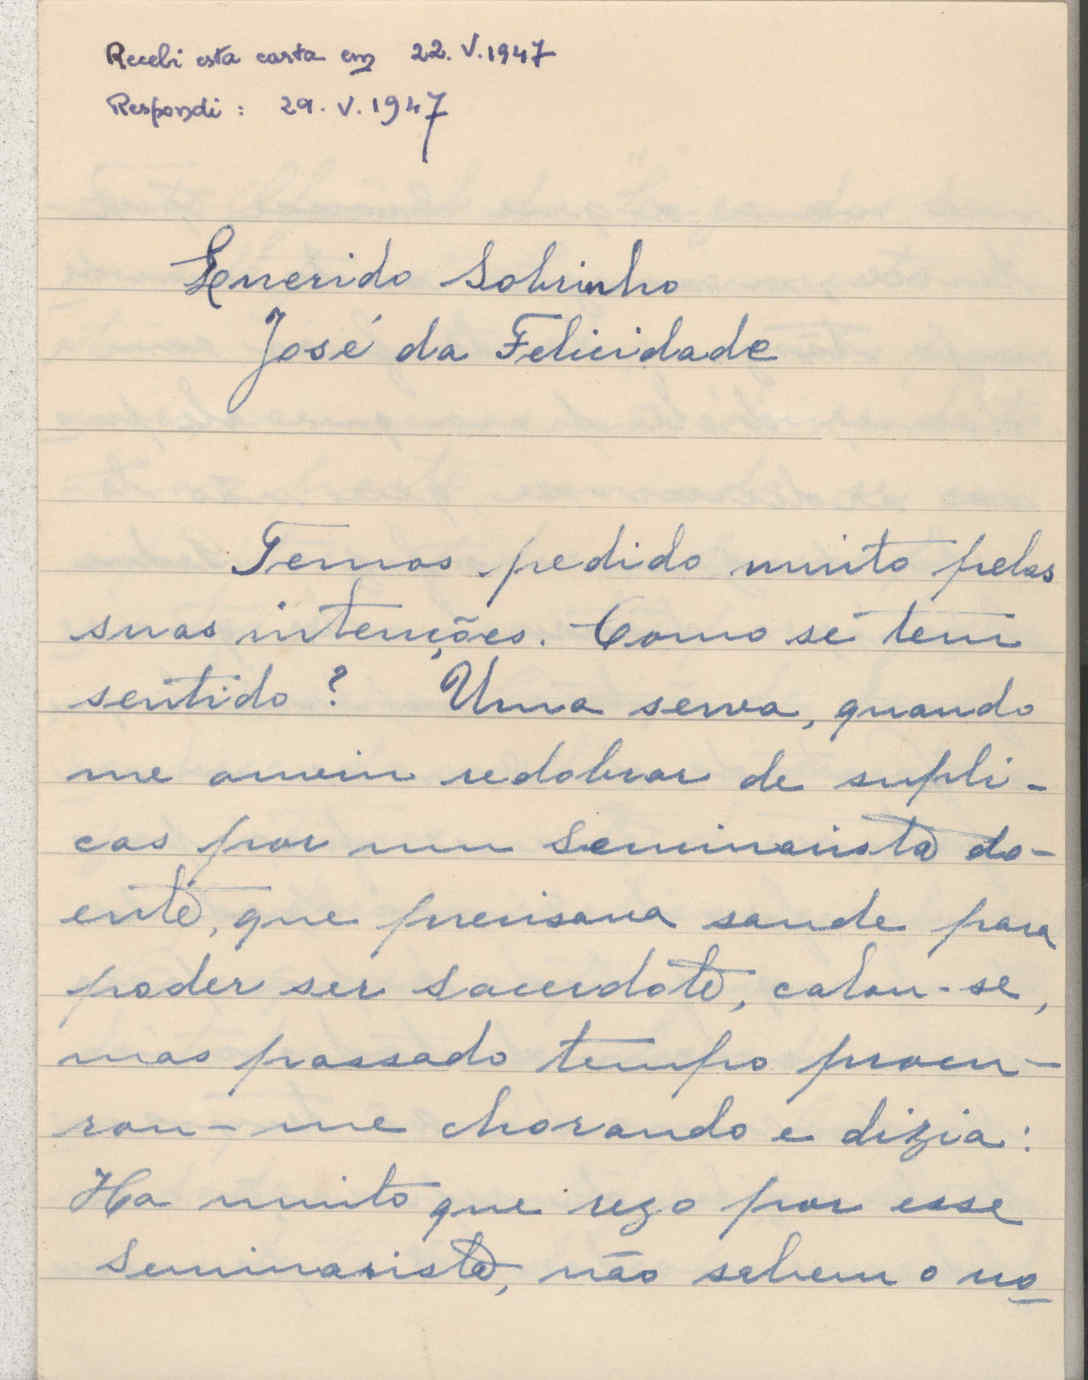 Recebi esta carta em 22.V.1947
Respondi: 29.V.1947
Querido Sobrinho
José da Felicidade
Temos pedido muito pelas
suas intenções. Como se tem
sentido? Uma serva, quando
me ouviu redobrar de supli-
cas por um Seminarista do-
ente, que precisava saude para
poder ser Sacerdote, calou-se,
mas passado tempo procu-
rou-me chorando e dizia:
Ha muito que rezo por esse
Seminarista, não sabem o no